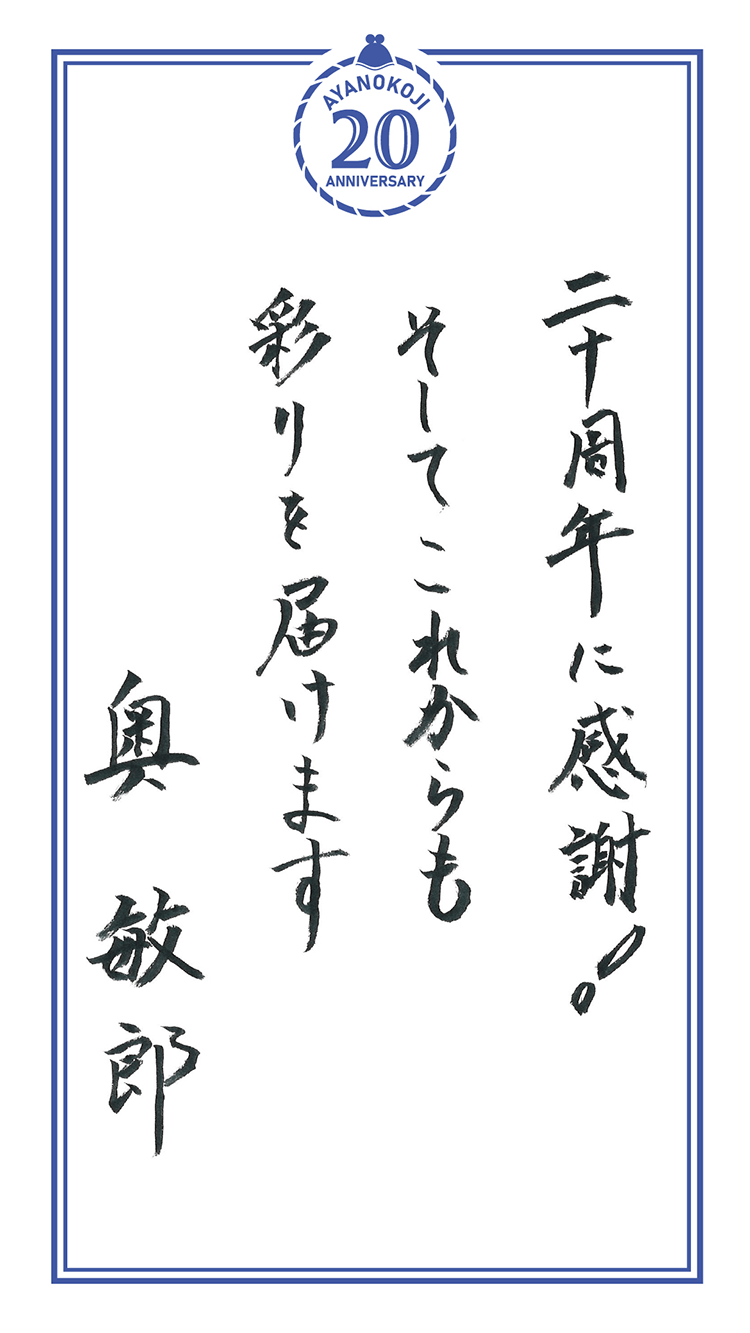 AYANOKOJI
20
ANNIVERSARY
二十周年に感謝!
そしてこれからも
彩りを届けます
奥 敏郎